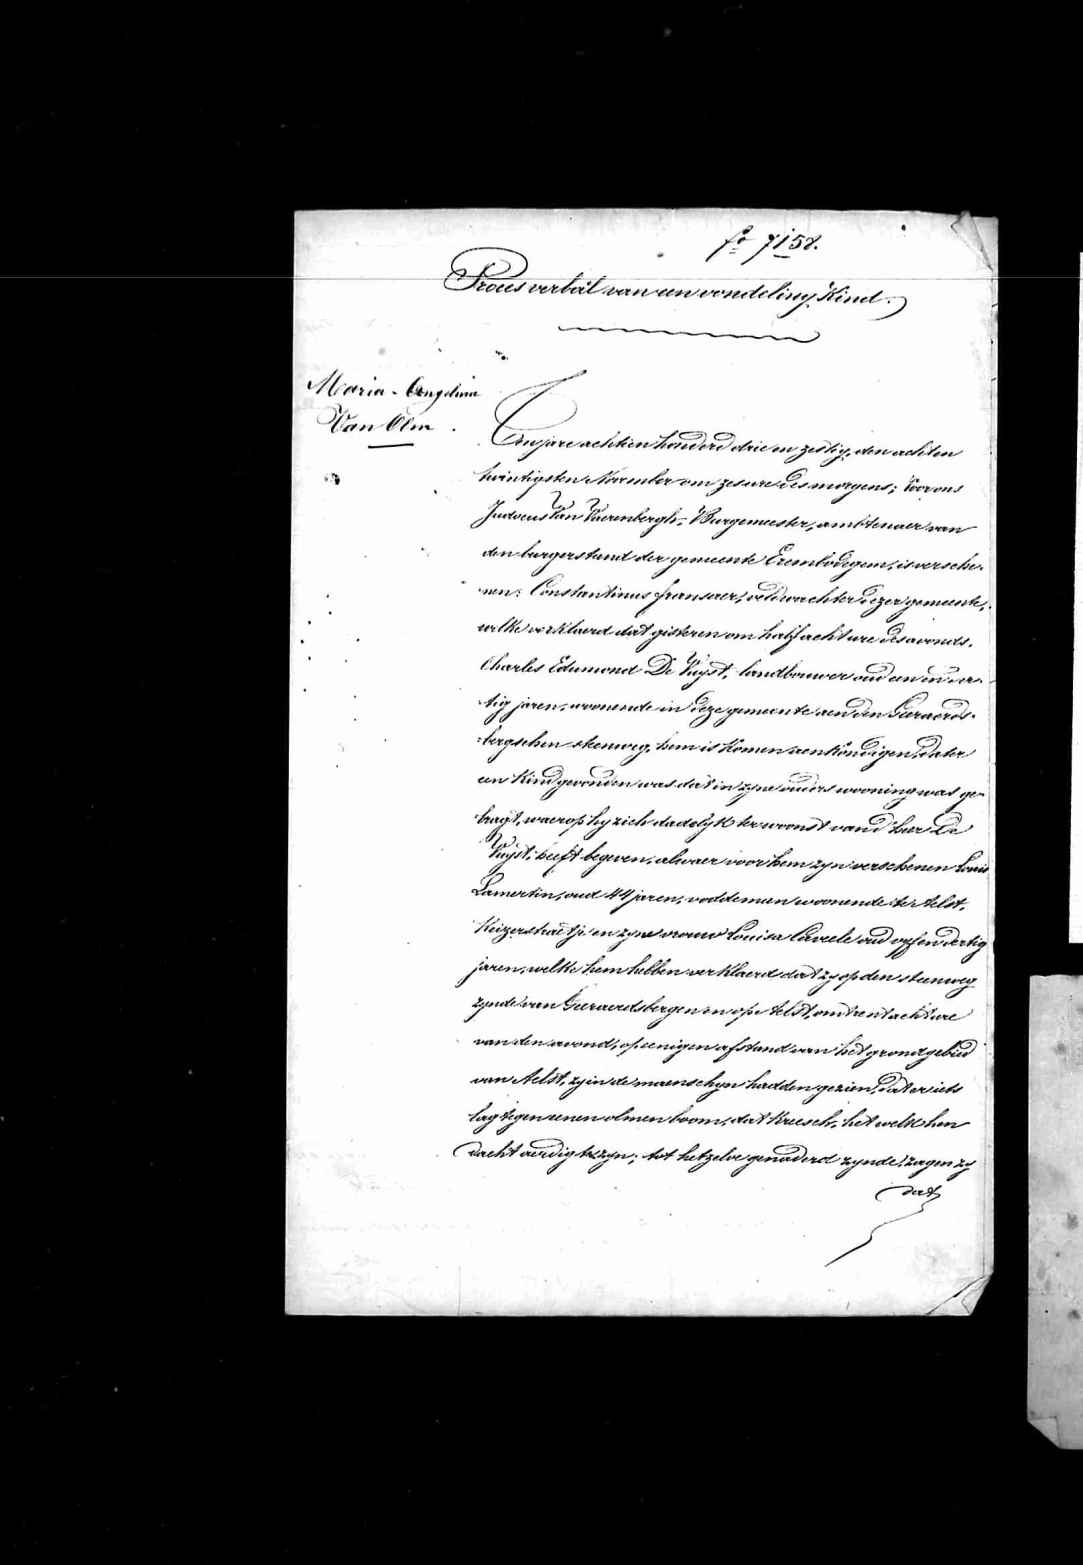 fo 7158.
Proces verbál van een vondeling Kind.
Maria-Angelina
Van Olm
Ten jare achtien honderd drie en zestig, den achten
twintigsten November om zes ure des morgens; Voor ons
Judocus Van Vaerenbergh, Burgemeester, ambtenaer van
den burgerstand der gemeente Erembodegem, is versche-
nen: Constantinus fransaer, veldwachter dezer gemeente,
welke verklaerd dat gisteren om half acht ure des avonds.
Charles Edumond De Vuyst, landbouwer oud een en ver-
tig jaren, woonende in deze gemeente aen den Geeraerds-
bergschen steenweg, hem is Komen aenkondigen, dat er
een Kind gevonden was dat in zyne ouders wooning was ge-
bragt, waerop hy zich dadelyk ter woonst van d'heer De
Vuyst, heeft begeven, alwaer voor hem zyn verschenen Louis
Lamertin, oud 44 jaren, voddeman woonende ter Aelst,
Keizerstraetje en zyne vrouw Louisa Caveele oud vyf en dertig
jaren, welke hem hebben verklaerd dat zy op den steenweg
zynde van Geeraerdsbergen en op Aelst, omtrent acht ure
van den avond, op eenigen afstand van het grondgebied
van Aelst, zy in de maenschyn hadden gezien, dat er iets
lag tegen eenen olmen boom, dat Kreesch, het welk hen
dacht aerdig te zyn; tot hetzelve genaderd zynde, zagen zy
dat